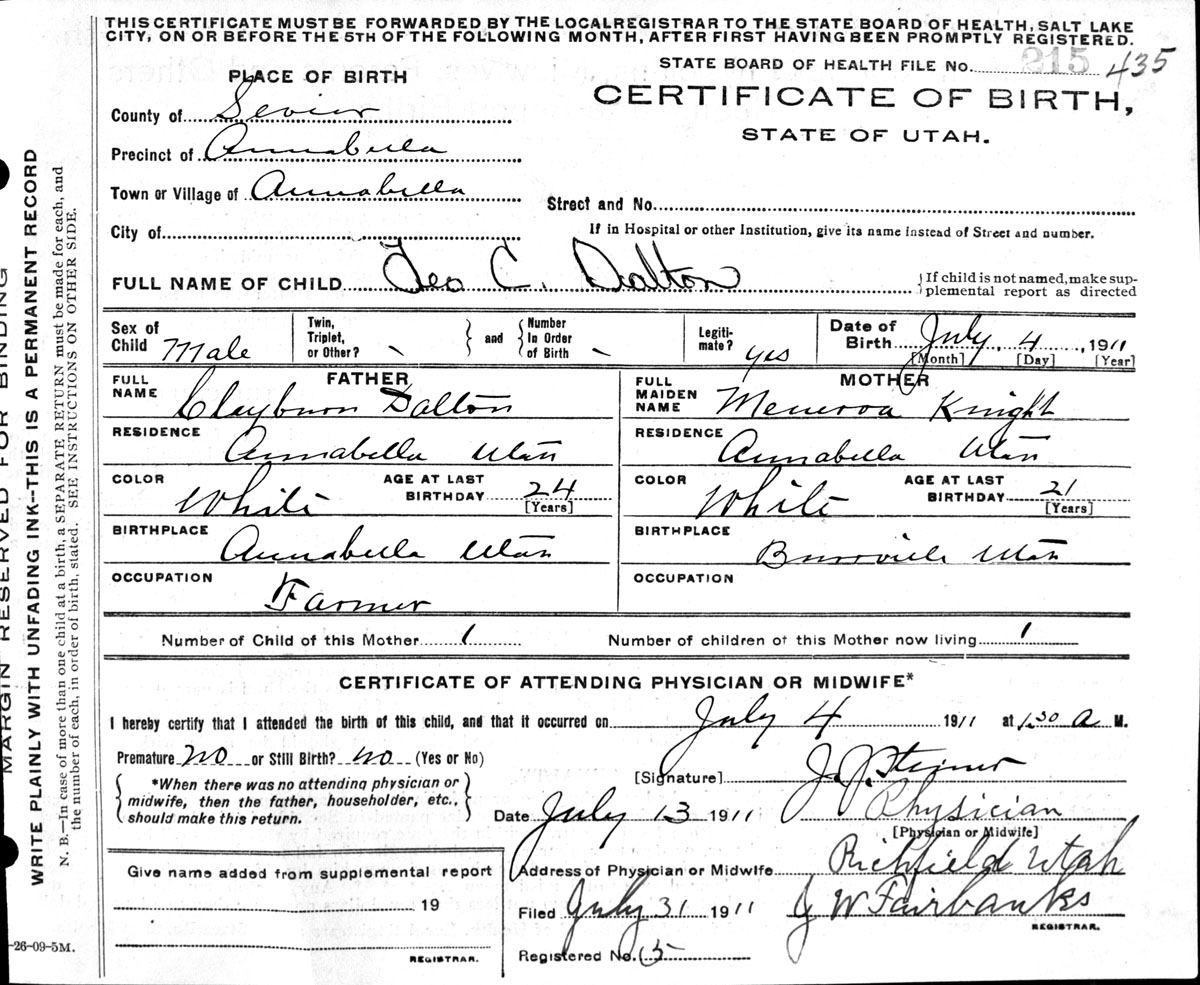 THIS CERTIFICATE MUST BE FORWARDED BY THE LOCAL REGISTRAR TO THE STATE BOARD OF HEALTH, SALT LAKE
CITY, ON OR BEFORE THE 5TH OF THE FOLLOWING MONTH, AFTER FIRST HAVING BEEN PROMPTLY REGISTERED.
STATE BOARD OF HEALTH FILE No. 215 435
PLACE OF BIRTH
CERTIFICATE OF BIRTH,
STATE OF UTAH.
County of Sevier
Precinct of Annabella
Town or Village of Annabella
Street and No.
City of
If in Hospital or other Institution, give its name instead of Street and number.
FULL NAME OF CHILD Leo C. Dalton
If child is not named, make sup-
plemental report as directed
Sex of Child Male
Twin, Triplet, or Other? and Number In Order of Birth
Legiti-mate? yes
Date of Birth July 4, 1911
[Month] [Day] [Year]
FATHER
FULL NAME Clayburn Dalton
RESIDENCE Annabella Utah
COLOR White AGE AT LAST BIRTHDAY 24
[Years]
BIRTHPLACE Annabella Utah
OCCUPATION Farmer
MOTHER
FULL MAIDEN NAME Menerva Knight
RESIDENCE Annabella Utah
COLOR White AGE AT LAST BIRTHDAY 21
[Years]
BIRTHPLACE Burrville Utah
OCCUPATION
Number of Child of this Mother 1 Number of children of this Mother now living 1
CERTIFICATE OF ATTENDING PHYSICIAN OR MIDWIFE*
I hereby certify that I attended the birth of this child, and that it occurred on July 4 1911 at 1.30 a M.
Premature no or Still Birth? no (Yes or No)
*When there was no attending physician or
midwife, then the father, householder, etc.,
should make this return.
[Signature] J. J. Steiner
Date July 13 1911 Physician
[Physician or Midwife]
Address of Physician or Midwife Richfield Utah
Filed July 31 1911 J W Fairbanks
REGISTRAR.
Registered No. 15
Give name added from supplemental report
19
REGISTRAR.
-26-09-5M.
MARGIN RESERVED FOR BINDING
WRITE PLAINLY WITH UNFADING INK--THIS IS A PERMANENT RECORD
N. B.—In case of more than one child at a birth, a SEPARATE RETURN must be made for each, and
the number of each, in order of birth, stated. SEE INSTRUCTION ON OTHER SIDE.